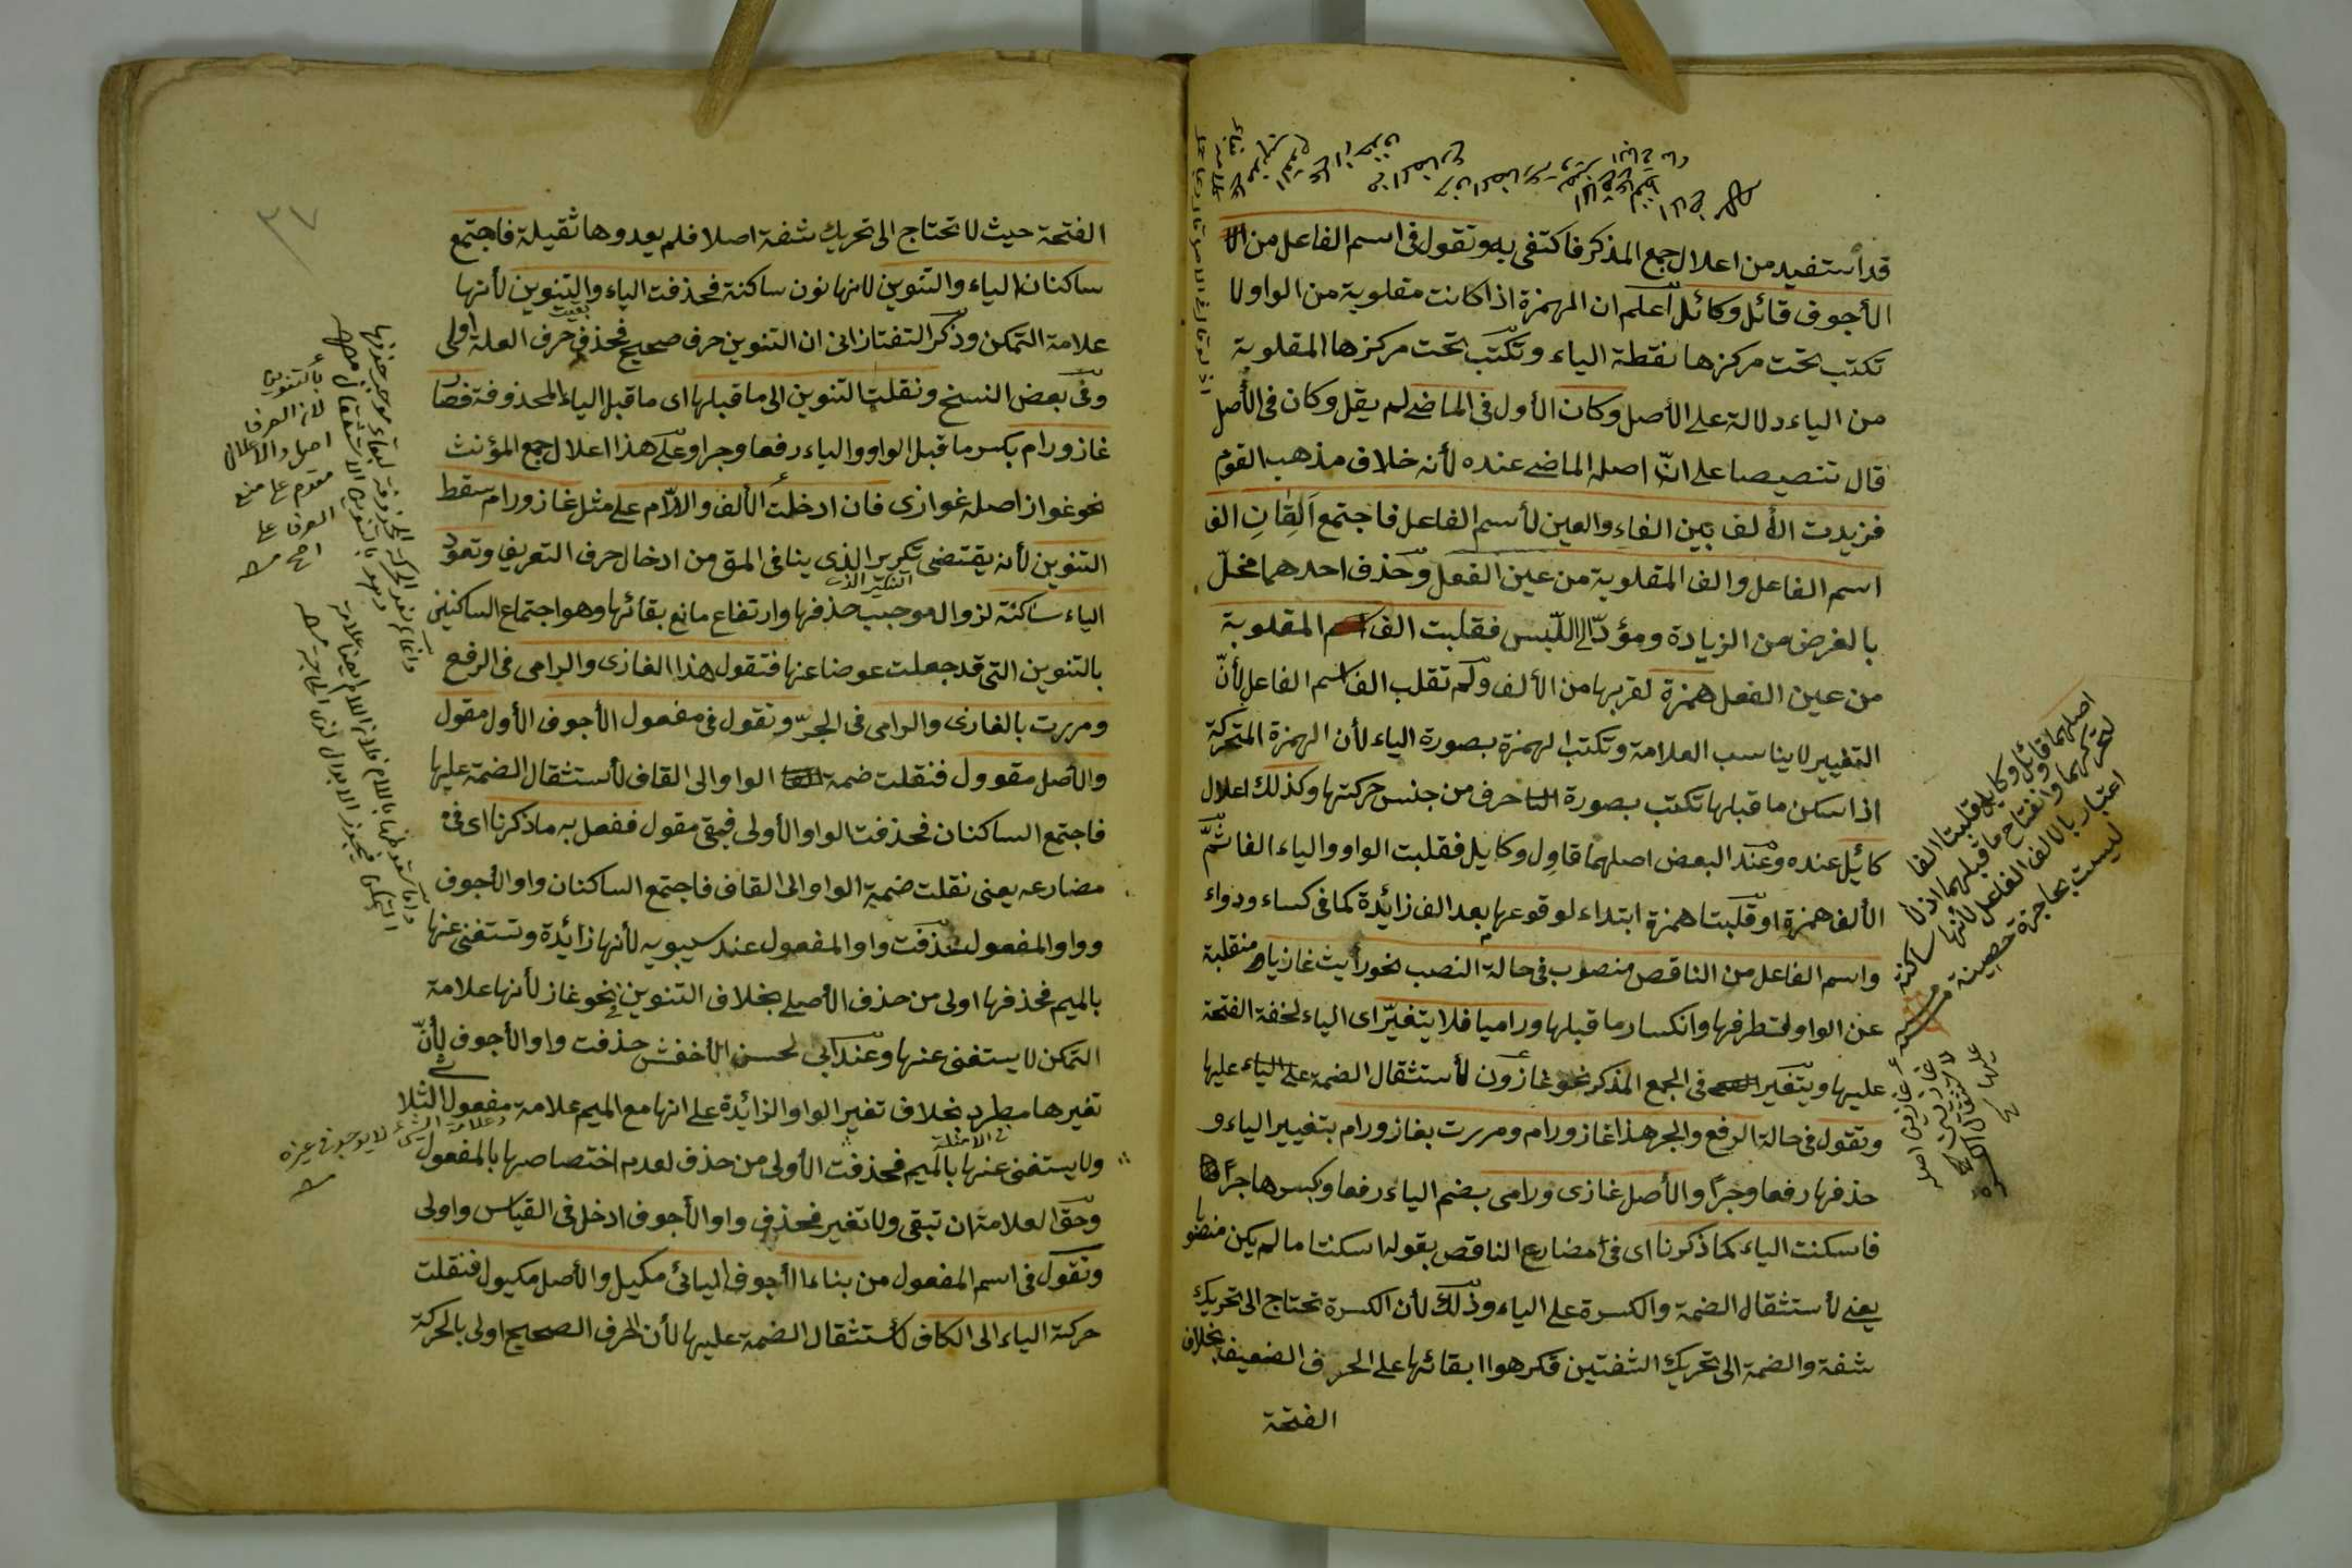 قد استفيد من اعلال جمع المذكر فاكتفى به وتقول فى اسم الفاعل من
الأجوف قائل وكائل اعلم ان الهمزة اذا كانت مقلوبة من الواو لا
تكتب تحت مركزها نقطة الياء وتكتب تحت مركزها المقلوبة
من الياء دلالة على الأصل وكان الأول فى الماضى لم يقل وكان فى الأصل
قال تنصيصا على انّ اصله الماضى عنده لأنه خلاف مذهب القوم
فزيدت الألف بين الفاء والعين لأسم الفاعل فاجتمع اَلِفَانِ الف
اسم الفاعل والف المقلوبة من عين الفعل وحذف احدهما مخلّ
بالغرض من الزيادة ومؤدّ الى اللّبس فقلبت الف المقلوبة
من عين الفعل همزة لقربها من الألف ولم تقلب الف اسم الفاعل لأنّ
التغيير لا يناسب العلامة وتكتب الهمزة بصورة الياء لأن الهمزة المتحركة
اذا سكن ما قبلها تكتب بصورة حرف من جنس حركتها وكذلك اعلال
كائل عنده وعند البعض اصلهما قاوِل وكايل فقلبت الواو والياء الفا ثمّ
الألف همزة او قلبتا همزة ابتداء لوقوعها بعد الف زائدة كما فى كساء ورداء
واسم الفاعل من الناقص منصوب فى حالة النصب نحو رأيت غازيا منقلبة
عن الواو لتطرفها وانكسار ما قبلها وراميا فلا يتغيّر اى الياء لخفة الفتحة
عليها ويتغير فى الجمع المذكر نحو غازون لأستثقال الضمة على الياء عليها
وتقول فى حالة الرفع والجر هذا غاز ورام ومررت بغاز ورام بتغيير الياء و
حذفها رفعا وجرّا والأصل غازى ورامى بضم الياء رفعا وبكسرها جرّا
فاسكنت الياء كما ذكرنا اى فى مضارع الناقص بقوله اسكنتا ما لم يكن منصوبا
يعنى لأستثقال الضمة والكسرة على الياء وذلك لأن الكسرة تحتاج الى تحريك
شفة والضمة الى تحريك الشفتين فكرهوا ابقائها على الحرف الضعيف بخلاف
الفتحة
اصلهما قائل وكايل قلبتا الفا
لتحركهما وانفتاح ما قبلهما اذ لا
اعتبار بالالف الفاعل لأنها ساكنة
ليست بحاجزة حصينة
٣٧
الفتحة حيث لا تحتاج الى تحريك شفة اصلا فلم يعدوها ثقيلة فاجتمع
ساكنان الياء والتنوين لانها نون ساكنة فحذفت الياء والتنوين لأنها
علامة التمكن وذكر التفتازانى ان التنوين حرف صحيح فحذف حرف العلة اولى
وفى بعض النسخ ونقلت التنوين الى ما قبلها اى ما قبل الياء المحذوفة فصار
غاز ورام بكسر ما قبل الواو والياء رفعا وجرا وعلى هذا اعلال جمع المؤنث
نحو غواز اصله غوازى فان ادخلت الألف واللاّم على مثل غاز ورام سقط
التنوين لأنه يقتضى تكرير الذى ينافى المق من ادخال حرف التعريف وتعود
الياء ساكنة لزوال موجب حذفها وارتفاع مانع بقائها وهو اجتماع الساكنين
بالتنوين التى قد جعلت عوضا عنها فتقول هذا الغازى والرامى فى الرفع
ومررت بالغازى والرامى فى الجرّ وتقول فى مفعول الأجوف الأول مقول
والأصل مقوول فنقلت ضمة الواو الى القاف لأستثقال الضمة عليها
فاجتمع الساكنان فحذفت الواو الأولى فبقى مقول ففعل به ما ذكرنا اى فى
مضارعه يعنى نقلت ضمة الواو الى القاف فاجتمع الساكنان واو الأجوف
وواو المفعول فحذفت واو المفعول عند سيبويه لأنها زائدة وتستغنى عنها
بالميم فحذفها اولى من حذف الأصلى بخلاف التنوين فى نحو غاز لأنها علامة
التمكن لا يستغنى عنها وعند ابى لحسن الأخفش حذفت واو الأجوف لأنّ
تغيرها مطرد بخلاف تغير الواو الزائدة على انها مع الميم علامة مفعول الثلا
ولا يستغنى عنها بالميم فحذفت الأولى من حذف لعدم اختصاصها بالمفعول
وحق العلامة ان تبقى ولا تغير فحذف واو الأجوف ادخل فى القياس واولى
وتقول فى اسم المفعول من بناء الأجوف اليائى مكيل والأصل مكيول فنقلت
حركة الياء الى الكاف لأستثقال الضمة عليها لأن الحرف الصحيح اولى بالحركة
بالتنوين
لانه الصرف
اصل والاعلال
مقدم على منع
الصرف على
وعلامة الشئ لا يوجد فى غيره